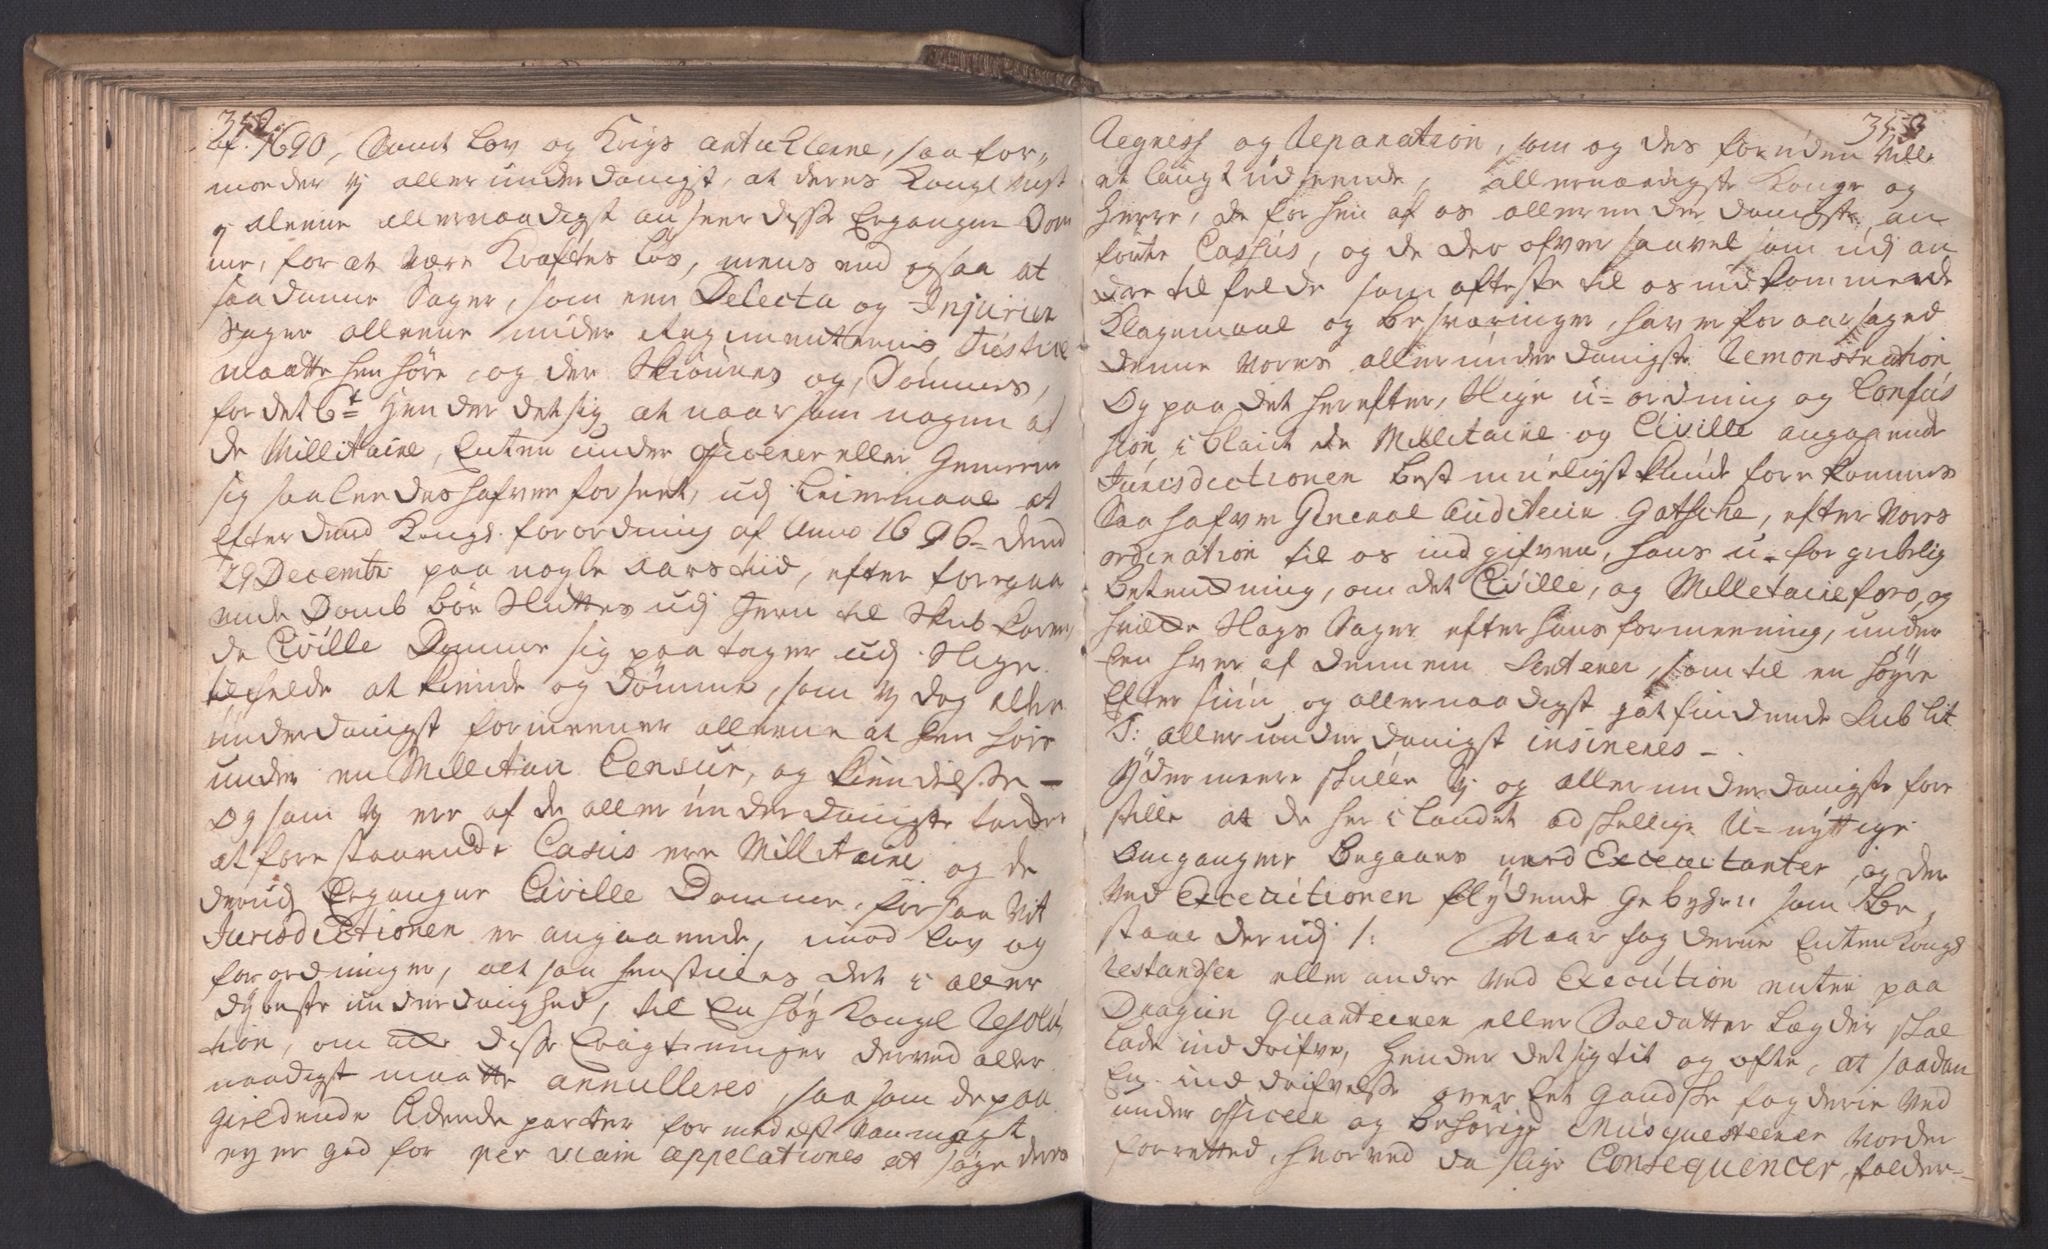 352
af. 1690, Samt Lov og Krigs articklerne, saa for„
moeder Vj allerunderdanigst, at deres Kongl Mayst
ej aleene allernaadigst anseer disse Ergangne Dom
me, for at være Kraftes løs, mens end ogsaa at
saadanne Sager, som een Delecta og Injurier
Sager alleene under Regimentternis Justice
maatte hen høre og der Skiønnes og Dømmes,
for det 6t Hender det sig at naar som nogen af
de Millitaire, Enten under officerer eller Gemeene
sig saaledes hafver forseet, udj Leiermaal at
efter dend Kongl. forordning af Anno 1696 dend
29 Decembr paa nogle Aars tiid, efter foregaa
ende Domb bør Sluttes udj Jern til Skub Karen,
de Civille Dommer sig paa tager udj slige
tilfælde at kiende og Dømme, som Vj dog aller
underdanigst formeener alleene at hen høre
under en Millitair Censur, og kiendelsse —
Og som Vj ere af de allerunderdanigste tancker
at forestaaende Casus ere Millitaire og de
derudj Ergangne Civille Domme, for saa Vit
Jurisdictionen er angaaende, imod Lov og
forordninger, alt saa henstilles det i aller
dybeste underdanighed, til En høy Kongel Resolu,
tion, om alle disse Eragtninger derved aller
naadigst maatte annulleres, saa som de paa
gieldende Lidende parter formedelst Vanmagt
ej er god for per viam appelationes at søge deres
353
Regress og Reparation, som og des foruden Ville
et langt udseende, allernaadigste Konge og
Herre, de forhen af os allerunderdanigste an
førte Cassus, og de der ofver saavel som udj an
dre tilfelde som ofteste til os indkommende
Klagemaal og Besværinger, haver foraarsaged
denne Vores allerunderdanigste Remonstration,
Og paa det herefter, slige u=ordning og Confus
sion, iblant de Millitaire og Civille angaaende
Jurisdictionen best mueligst kunde forekommes
Saa hafver General Auditeur Gatsche, efter Vores
ordination til os indgifven, hans u=forgribelig
Betenckning, om det Civille, og Milletaire foro, og
hvilcke Slags Sager efter hans formeening, under
een hver af dennem Senterer, som til en høyre
Efter siun og allernaadigst gotfindende Sub Lit
T: allerunderdanigst insinueres —.
Ydermeere skulle Vj og allerunderdanigste fore
stille at de her i Landet adskellige U=nyttige
Omganger Begaaes med Executanter, og der
Ved Executionen flydende Gebyhr som Be,
staar derudj 1: Naar fogderne Enten Kongl
restandser eller andre Ved Execution enten paa
Dragun Quarteerer eller Soldatter Legder skal
lade inddrifve, Hender det sig tit og ofte, at saadan
En inddrifvelsse over Eet Gandske fogderie Ved
under officeer og Behørige Musqueteerer Vorder
forretted, hvorved da slige Consequencer, falder—